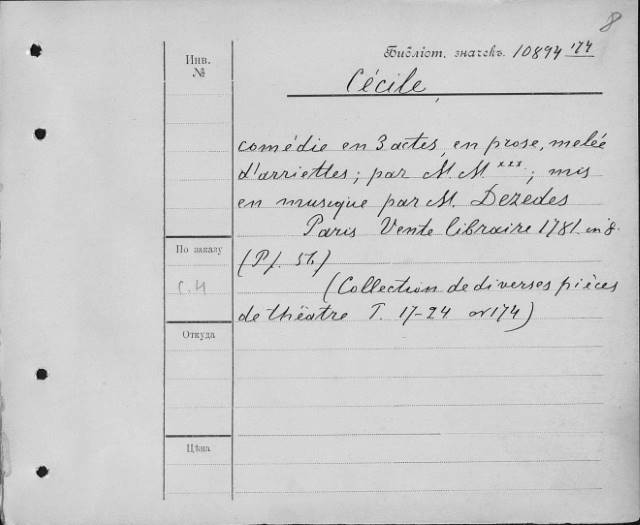 8
Инв. №
Библіот. значекъ. 10894 174
Cécile,
comédie en 3 actes, en prose, melée
d'arriettes; par M. M xxx; mis
en musique par M. Dezedes
Paris Vente libraire 1781. in 8.
По заказу
С.Н
(Collection de diverses pièces
de théatre T. 17-24 174)
Откуда
Цѣна